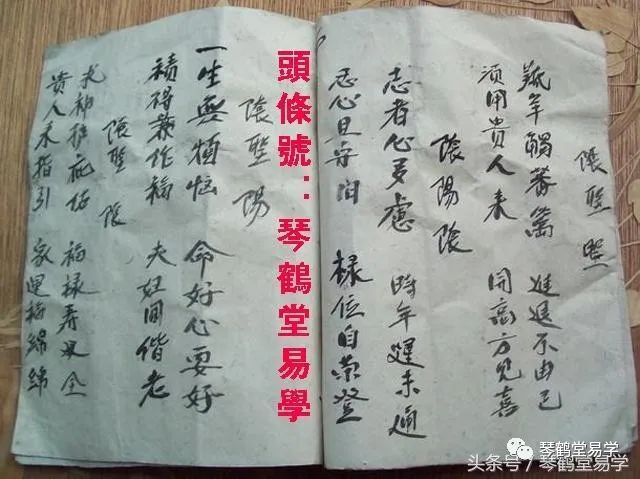 陰聖聖
羝羊觸藩籬 進退不由己
須用貴人来 開方見喜
陰陽陰
志者心多慮 時年遲未通
忍心且守旧 禄位自荣登
頭條號：琴鶴堂易學
陰聖陽
一生無煩恼 命好心要好
積得善作福 夫妇同偕老
陰聖陰
求神庇佑 福禄寿全
貴人来指引 家運綿綿
琴鹤堂易学
头条号 / 琴鹤堂易学